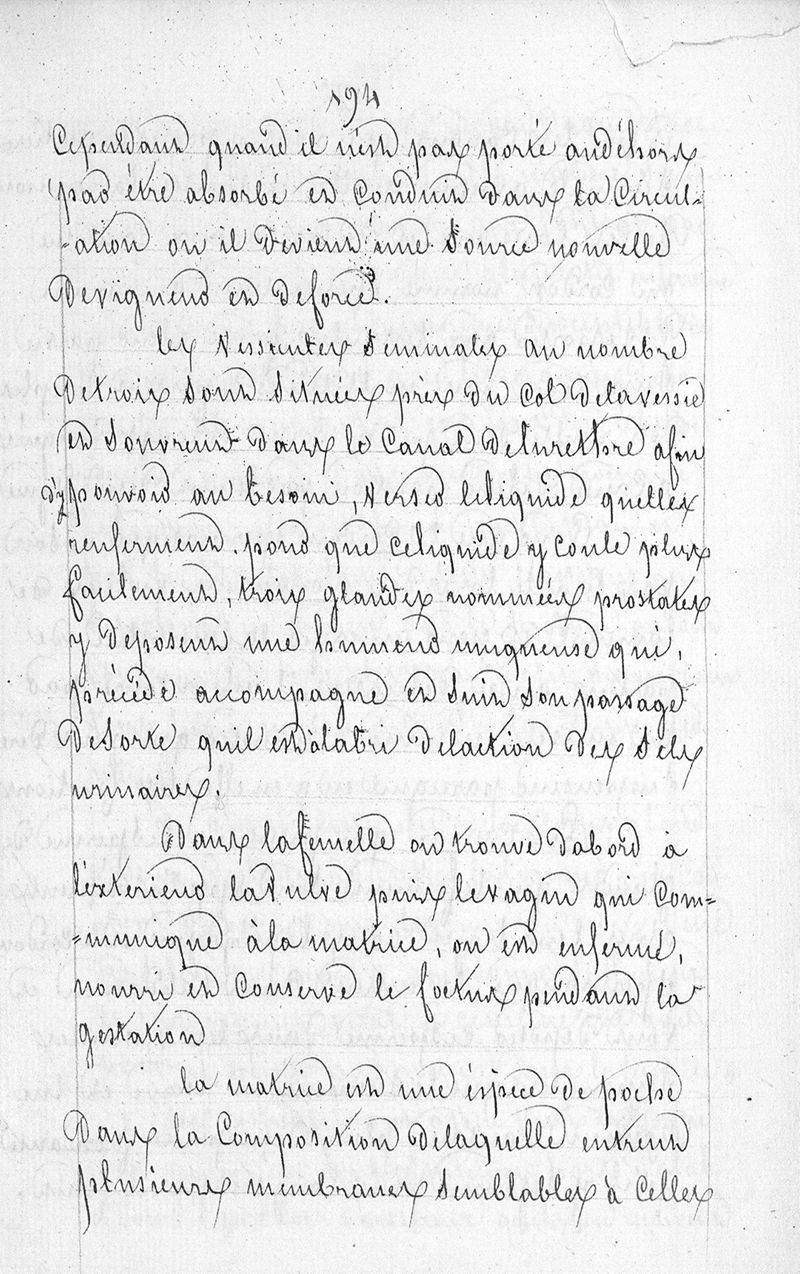 194
Cependant quand il n'est pas porté audéhors
pas être absorbé et conduit dans la Circul-
-ation ou il devient une source nouvelle
de vigueur et de force.
les vessicules Seminales au nombre
de trois sont situées prés du Col de la vessie
et Souvrent dans le Canal de lurethre afin
d'y pouvoir au besoin, verser le liquide quelles
renferment. pour que ce liquide y coule plus
facilement, trois glandes nommées prostates
y deposent une humeur muqueuse qui,
précède accompagne et suit Son passage
de Sorte quil est àlabri de laction des Sels
urinaires.
Dans la femelle on trouve d'abord à
l'exterieur la Vulve puis le vagin qui Com=
=munique à la matrice, ou est enfermé,
nourri et Conservé le foetus pendant la
gestation
la matrice est une éspèce de poche
Dans la Composition de laquelle entrent
plusieurs membranes Semblables à Celles